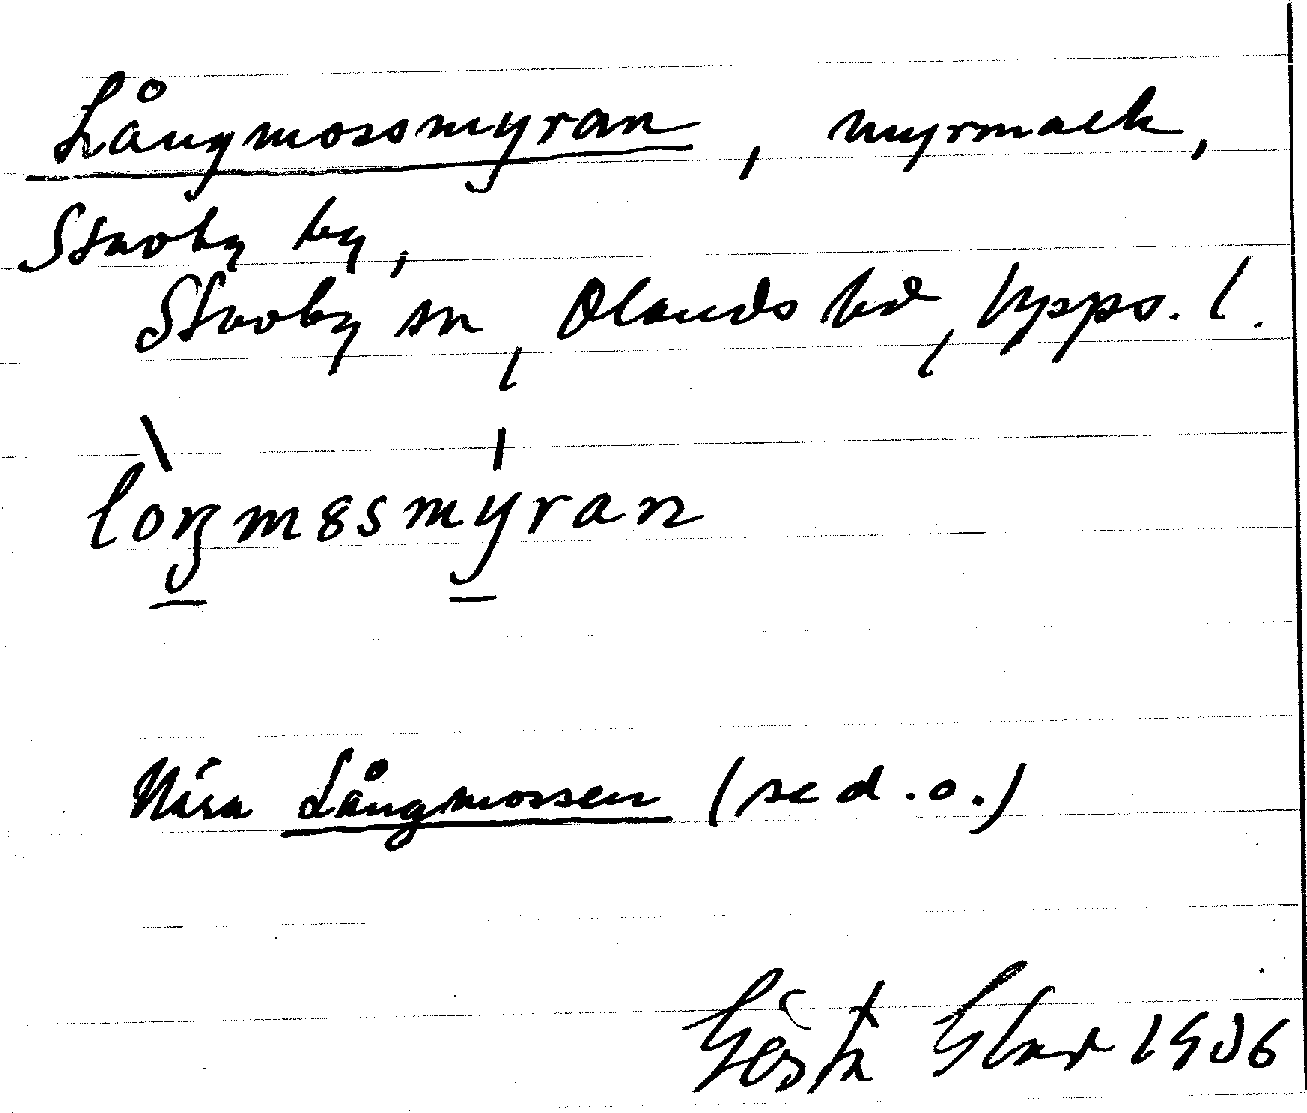 Långmossmyran, myrmark,
Stavby by,
Stavby sn, Olands hd, Upps. l.
lòŋmȣsmýran
Nära Långmossen (se d.o.)
Gösta 1936